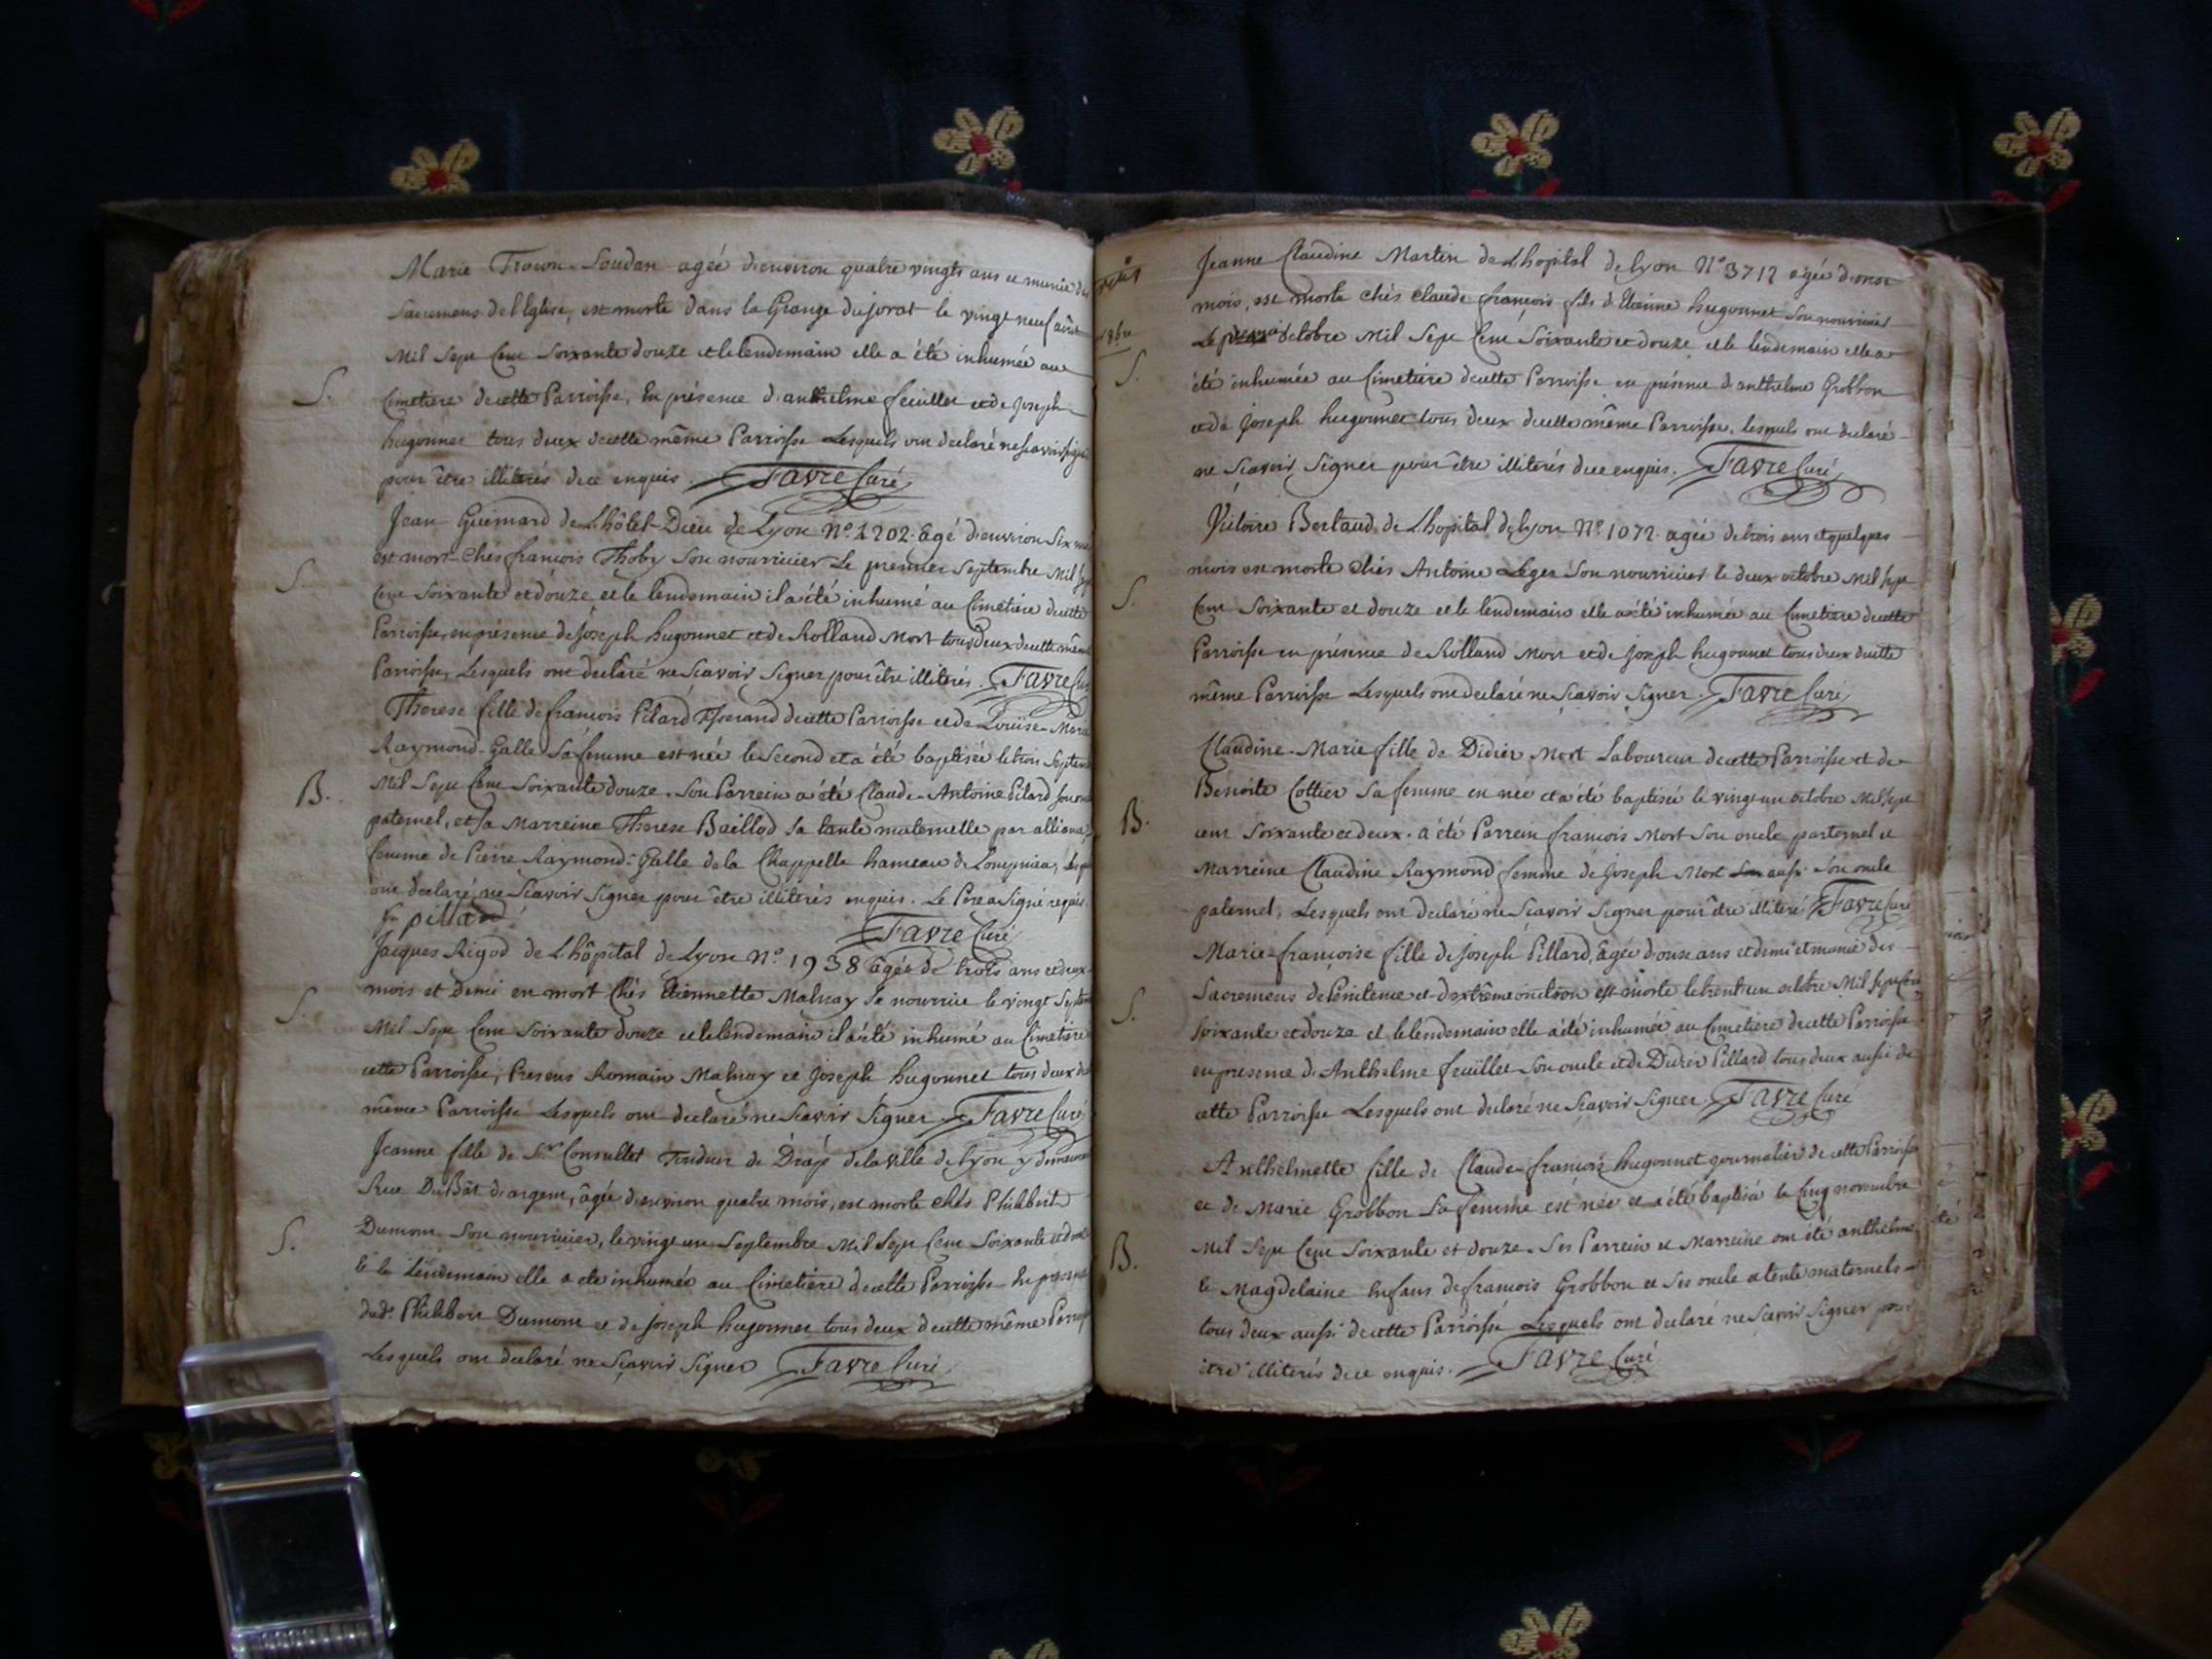 Marie Trocon-Soudan agée d'environ quatre vingts ans et munie des
sacremens de l'Eglise, est morte dans la Grange du jorat le vingt neuf août
Mil Sept Cent Soixante douze et le lendemain elle a été inhumée au
S.
Cimetiere de cette Parroisse, En présence d'anthelme feuillet et de Joseph
hugonnet tous deux de cette même Parroisse Lesquels ont declaré ne scavoir signer
pour être illiterés de ce enquis. Favre Curé
Jean Guimard de L'hôtel-Dieu de Lyon N.º 1202. Agé d'environ Six
est mort Chés francois Thoby Son nourricier Le premier Septembre Mil Sept
S.
Cent Soixante et douze et le lendemain il a été inhumé au Cimetiere de cette
Parroisse, en présence de Joseph hugonnet et de Rolland Mort tous deux de cette même
Parroisse, Lesquels ont declaré ne Scavoir Signer pour être illiterés. Favre Curé
Therese fille de francois Pilard Tisserand de cette Parroisse et de Louise-Marie
Raymond-Galle Sa femme est née le Second et a été baptisée le trois Septembre
B.
Mil Sept Cent Soixante douze. Son Parrein a été Claude-Antoine Pilard son oncle
paternel, et Sa Marreine Therese Baillod Sa tante maternelle par alliance,
femme de Pierre Raymond-Galle de la Chappelle hameau de Lompnieu,
ont declaré ne Scavoir Signer pour être illiterés enquis. Le Pere a Signé requis
pillard
Favre Curé
Jacques Rigod de L'hôpital de Lyon N.º 1938 âgée de trois ans et deux
mois et Demi en mort Chés Etiennette Malnay Sa nourrice le vingt Septembre
S.
Mil Sept Cent Soixante douze et le lendemain il a été inhumé au Cimetiere
cette Parroisse, Presens Romain Malnay et Joseph hugonnet tous deux de
même Parroisse Lesquels ont declaré ne Scavoir Signer Favre Curé
Jeanne fille de Sr Consullet Tondeur de Draps de la ville de Lyon y demeurant
Rue Du Bât d'argent, âgée d'environ quatre mois, est morte chés Philibert
S.
Dumont Son nourricier, le vingt un Septembre Mil Sept Cent Soixante et douze
& le Lendemain elle a été inhumée au Cimetiere de cette Parroisse En presence
dud. Philibert Dumont et de Joseph hugonnet tous deux de cette même Parroisse
Lesquels ont declaré ne Scavoir Signer Favre Curé
Jeanne Claudine Martin de L'hopital de Lyon N.º 3712 agée d'onse
mois, est morte chés Claude françois fils d'Etienne hugonnet Son nourricier
8bre
Le premier octobre Mil Sept Cent Soixante et douze et le lendemain elle a
S.
été inhumée au Cimetiere de cette Parroisse en présence d'anthelme Grobbon
et de Joseph hugonnet tous deux de cette même Parroisse, lesquels ont declaré
ne Scavoir Signer pour être illiterés de ce enquis. Favre Curé
Victoire Bertaud de L'hopital de Lyon N.º 1072. agée de trois ans et quelques
mois est morte chés Antoine Leger Son nourricier le deux octobre Mil Sept
S.
Cent Soixante et douze et le lendemain elle a été inhumée au Cimetiere de cette
Parroisse en présence de Rolland Mort et de Joseph hugonnet tous deux de cette
même Parroisse Lesquels ont declaré ne Scavoir Signer. Favre Curé
Claudine-Marie fille de Didier Mort Laboureur de cette Parroisse et de
Bénoite Cottier Sa femme en née et a été baptisée le vingt un octobre Mil Sept
B.
cent Soixante et deux. a été Parrein francois Mort Son oncle parternel et
Marreine Claudine Raymond femme de Joseph Mort aussi Son oncle
paternel, Lesquels ont declaré ne Scavoir Signer pour être illiteré Favre Curé
Marie-françoise fille de Joseph Pillard, âgée d'onse ans et demi et munie des
Sacremens de Penitence et d'extrême onction est morte le trent un octobre Mil Sept Cent
S.
Soixante et douze et le lendemain elle a été inhumée au Cimetiere de cette Parroisse
en presence de Anthelme feuillet Son oncle et de Didier Pillard tous deux aussi de
cette Parroisse Lesquels ont declaré ne Scavoir Signer. Favre Curé
Anthelmette fille de Claude-francois hugonnet journalier de cette Parroisse
et de Marie Grobbon Sa femme est née et a été baptisée le Cinq novembre
B.
Mil Sept Cent Soixante et douze. Ses Parrein et Marreine ont été anthelme
& Magdelaine Enfans de francois Grobbon et Ses oncle et tente maternels
tous deux aussi de cette Parroisse Lesquels ont declaré ne Scavoir Signer pour
être illiterés de ce enquis. Favre Curé